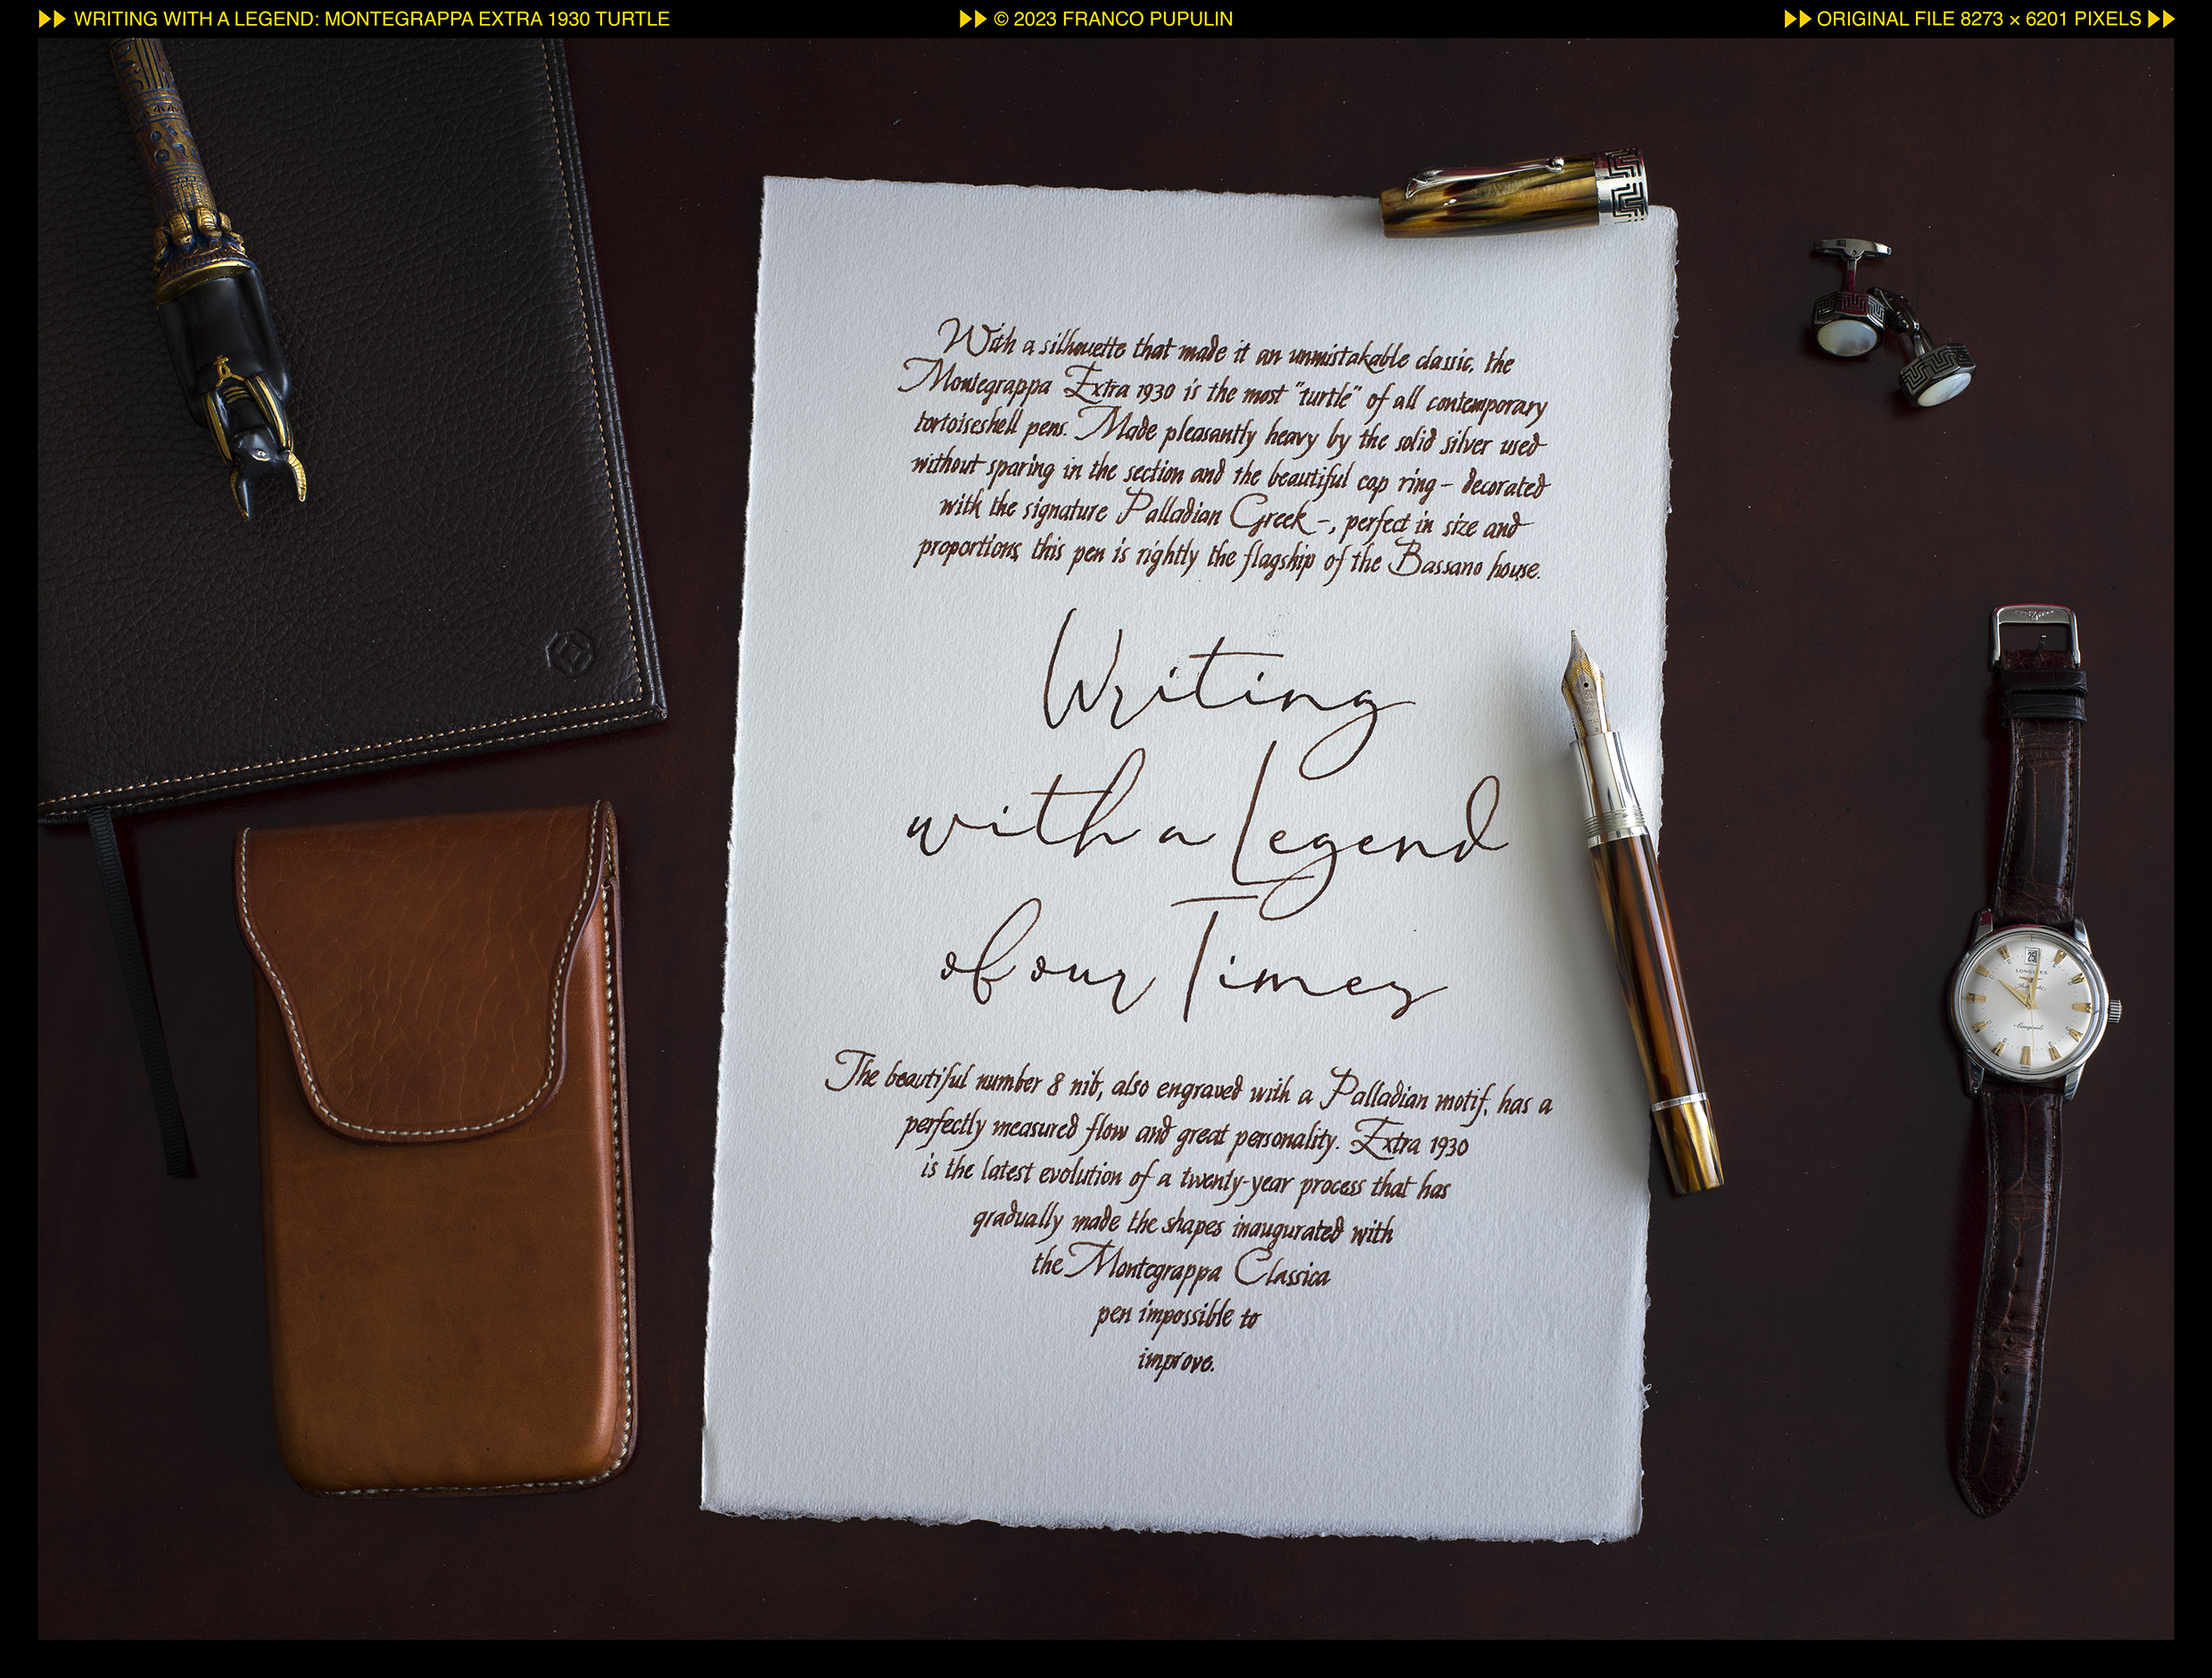 WRITING WITH A LEGEND: MONTEGRAPPA EXTRA 1930 TURTLE
© 2023 FRANCO PUPULIN
ORIGINAL FILE 8273 × 6201 PIXELS
With a silhouette that made it an unmistakable classic, the
Montegrappa Extra 1930 is the most "turtle" of all contemporary
tortoiseshell pens. Made pleasantly heavy by the solid silver used
without sparing in the section and the beautiful cap ring – decorated
with the signature Palladian Greek –, perfect in size and
proportions, this pen is rightly the flagship of the Bassano house.
Writing
with a Legend
of our Times
The beautiful number 8 nib, also engraved with a Palladian motif, has a
perfectly measured flow and great personality. Extra 1930
is the latest evolution of a twenty-year process that has
gradually made the shapes inaugurated with
the Montegrappa Classica
pen impossible to
improve.
25
LONGINES
Automatic
Conquest